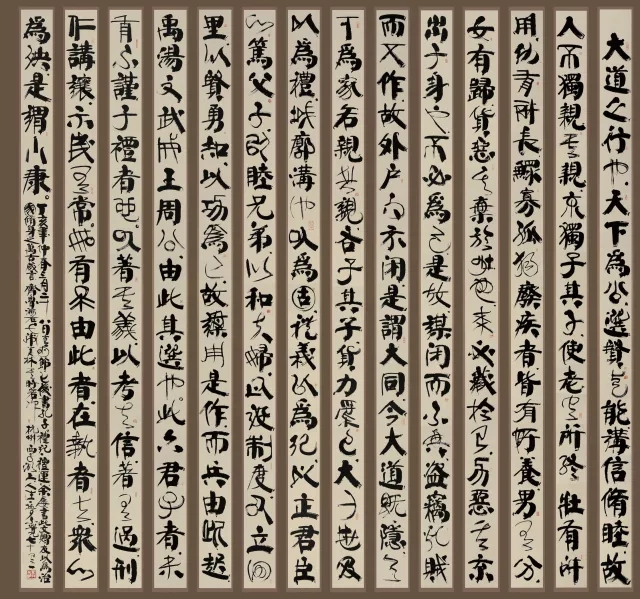 大道之行也天下為公選賢與能講信脩睦故
人不獨親其親不獨子其子使老有所終壯有所
用幼有所長鰥寡孤獨廢疾者皆有所養男有分
女有歸貨惡其棄於地也不必藏於己力惡其不
出於身也而不必為己是故謀閉而不興盜竊亂賊
而不作故外戶而不閉是謂大同今大道既隱天
下為家各親其親各子其子貨力為己大人世及
以為禮城郭溝池以為固禮義以為紀以正君臣
以篤父子以睦兄弟以和夫婦以設制度以立田
里以賢勇知以功為己故謀用是作而兵由此起
禹湯文武成王周公由此其選也此六君子者未
有不謹於禮者也以著其義以考其信著有過刑
仁講讓示民有常如有不由此者在執者去眾以
為殃是謂小康。